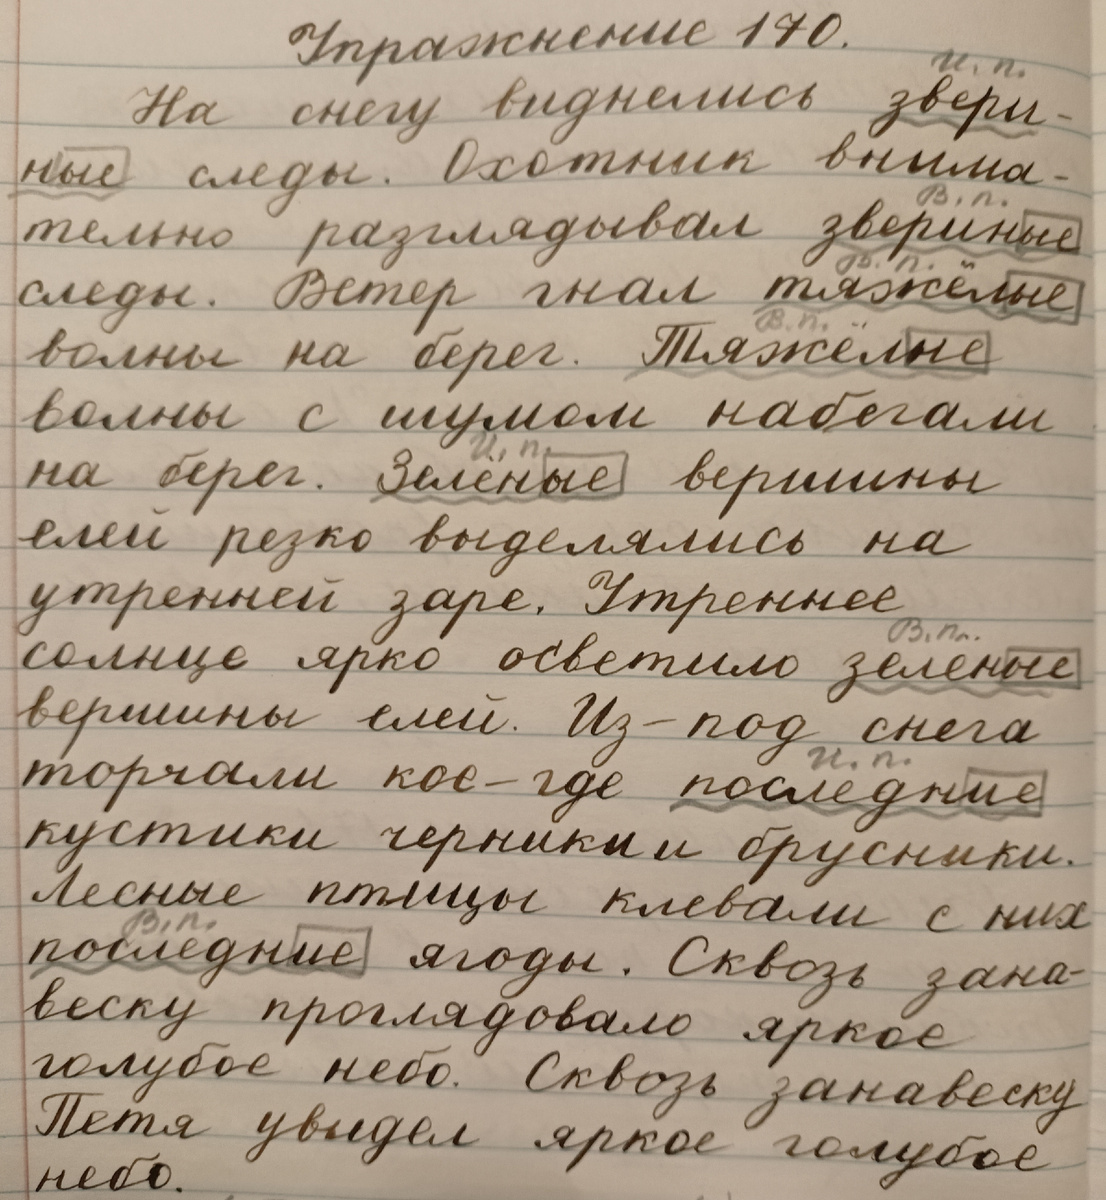 Упражнение 170.
И. п.
На снегу виднелись звери-
ные следы. Охотник внима-
В. п.
тельно разглядывал звериные
В. п.
следы. Ветер гнал тяжёлые
В. п.
волны на берег. Тяжёлые
волны с шумом набегали
И. п.
на берег. Зелёные вершины
елей резко выделялись на
утренней заре. Утреннее
В. п.
солнце ярко осветило зеленые
вершины елей. Из-под снега
И. п.
торчали кое-где последние
кустики черники и брусники.
Лесные птицы клевали с них
В. п.
последние ягоды. Сквозь зана-
веску проглядовало яркое
голубое небо. Сквозь занавеску
Петя увидел яркое голубое
небо.